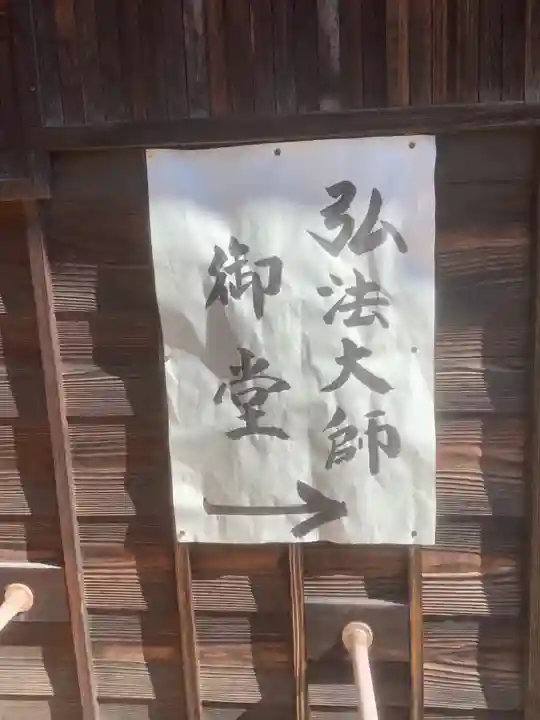 弘法大師
御堂
→